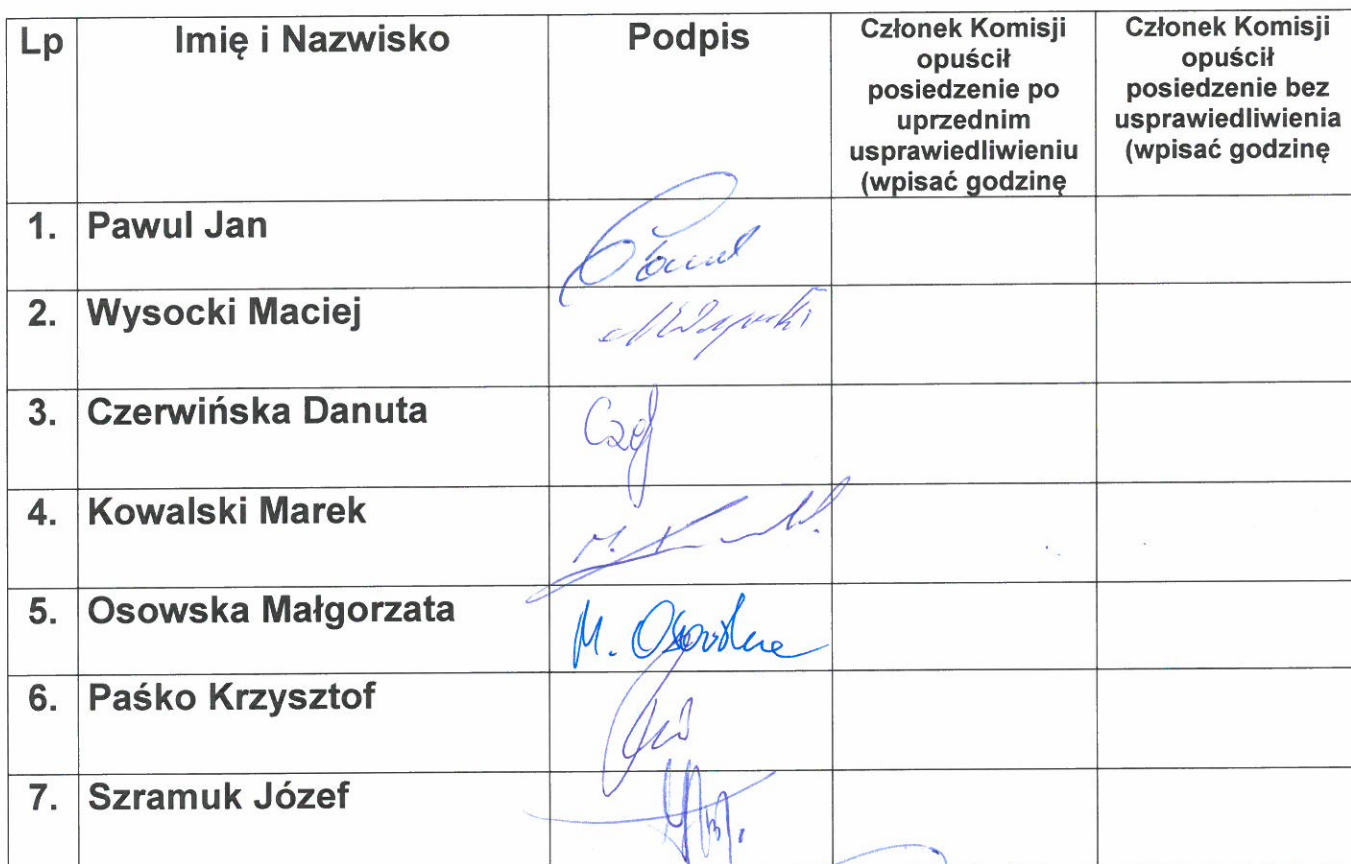 Lp Imię i Nazwisko Podpis Członek Komisji opuścił posiedzenie po uprzednim usprawiedliwieniu (wpisać godzinę Członek Komisji opuścił posiedzenie bez usprawiedliwienia (wpisać godzinę
1. Pawul Jan
2. Wysocki Maciej
3. Czerwińska Danuta
4. Kowalski Marek
5. Osowska Małgorzata M. Osowska
6. Paśko Krzysztof
7. Szramuk Józef